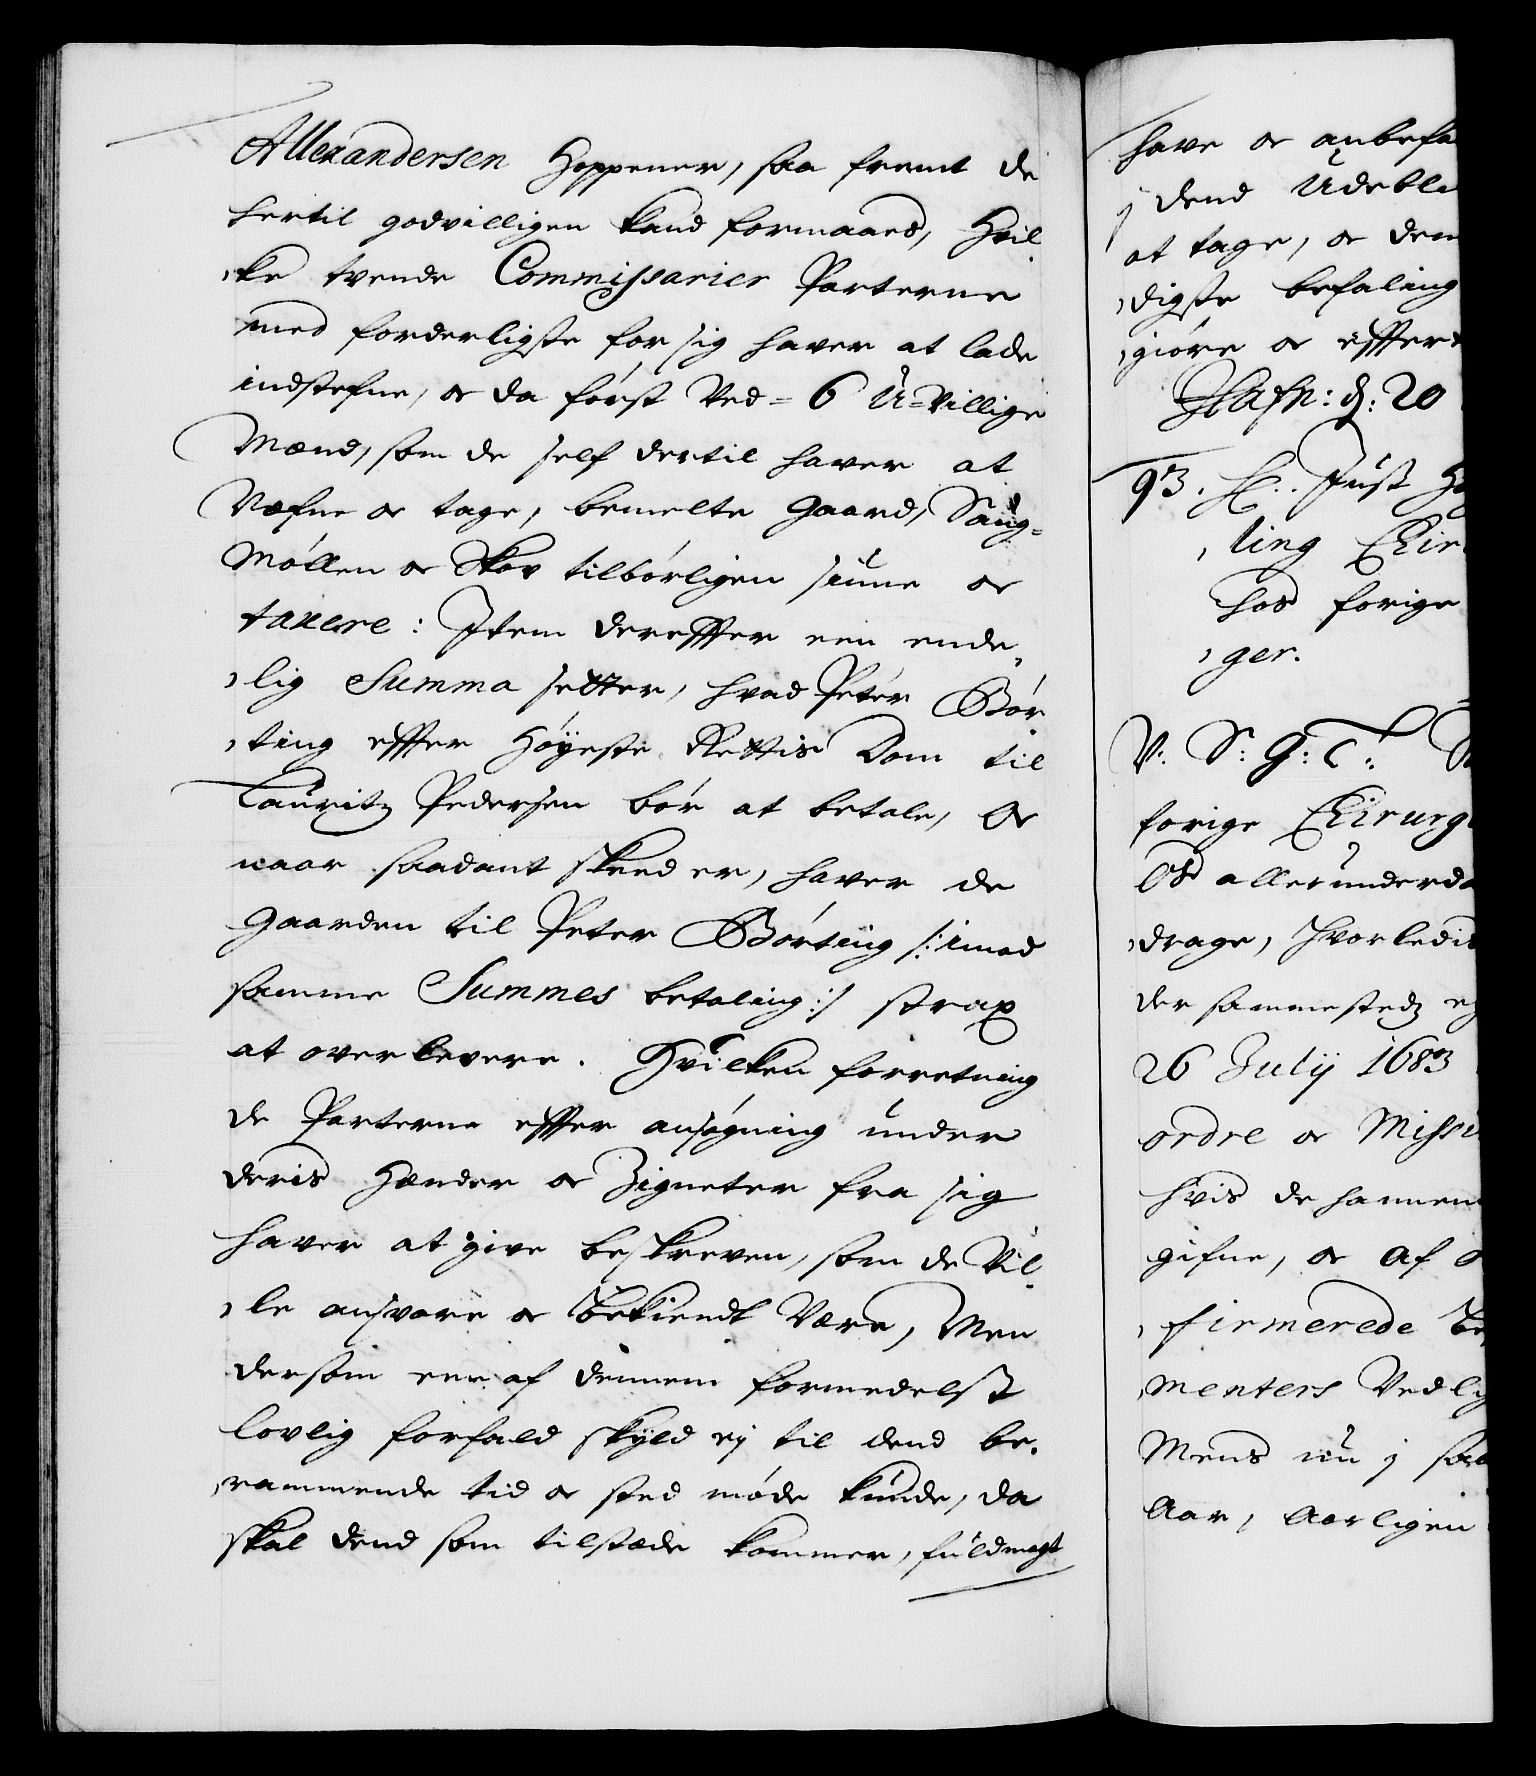 Allexandersen Hoppener, saa fremt de
hertil godvilligen kand formaaes, Hvil
ke tvende Commissarier Parterne
med forderligste for sig haver at lade
indstefne, oc da først Ved=6 U=Villige
Mænd, som de self dertil haver at
Næfne oc tage, bemelte Gaard, Saug=
Møllen oc Skov tilbørligen siune oc
taxere: Item dereffter een ende,
lig Summa setter, hvad Peter Bør
ting effter Høyeste Rettis Dom til
Lauritz Pedersen bør at betale, Oc
naar saadant skeed er, haver de
Gaarden til Peter Børting /: imod
samme Summes betaling :/ strax
at overlevere. Hvilken forretning
de Parterne effter ansøgning under
deris Hænder oc Zigneter fra sig
haver at give beskreven, som de Vil
le ansvare oc bekiendt Være, Men
dersom een af dennem formedelst
lovlig forfald skyld ej til dend be.
rammende tid oc sted møde kunde, da
skal dend som tilstæde kommer, fuldmagt
have oc anbefa
j dend Udebli
at tage, oc dem
digste befaling
giøre oc effter
Hafn: d: 20
93. H.. Just H
ling Chir
hos forige
ger.
V: S: G: T:
forige Chirurg
Os allerunderda
drage, hvorledis
der sammestedz
26 Julij 1683
ordre oc Missi
hvis de hannem
gifne, oc af
firmerede be
menters Vedli
Mens nu j saa
Aar, Aarligen